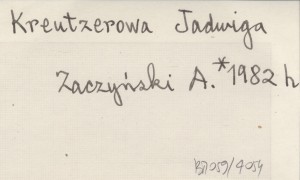 Kreutzerowa Jadwiga
Zaczyński A. *1982 h
B7059/9054